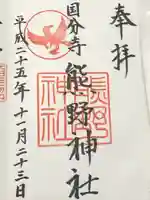 奉拝
国分寺
熊野神社
平成二十五年十一月二十三日